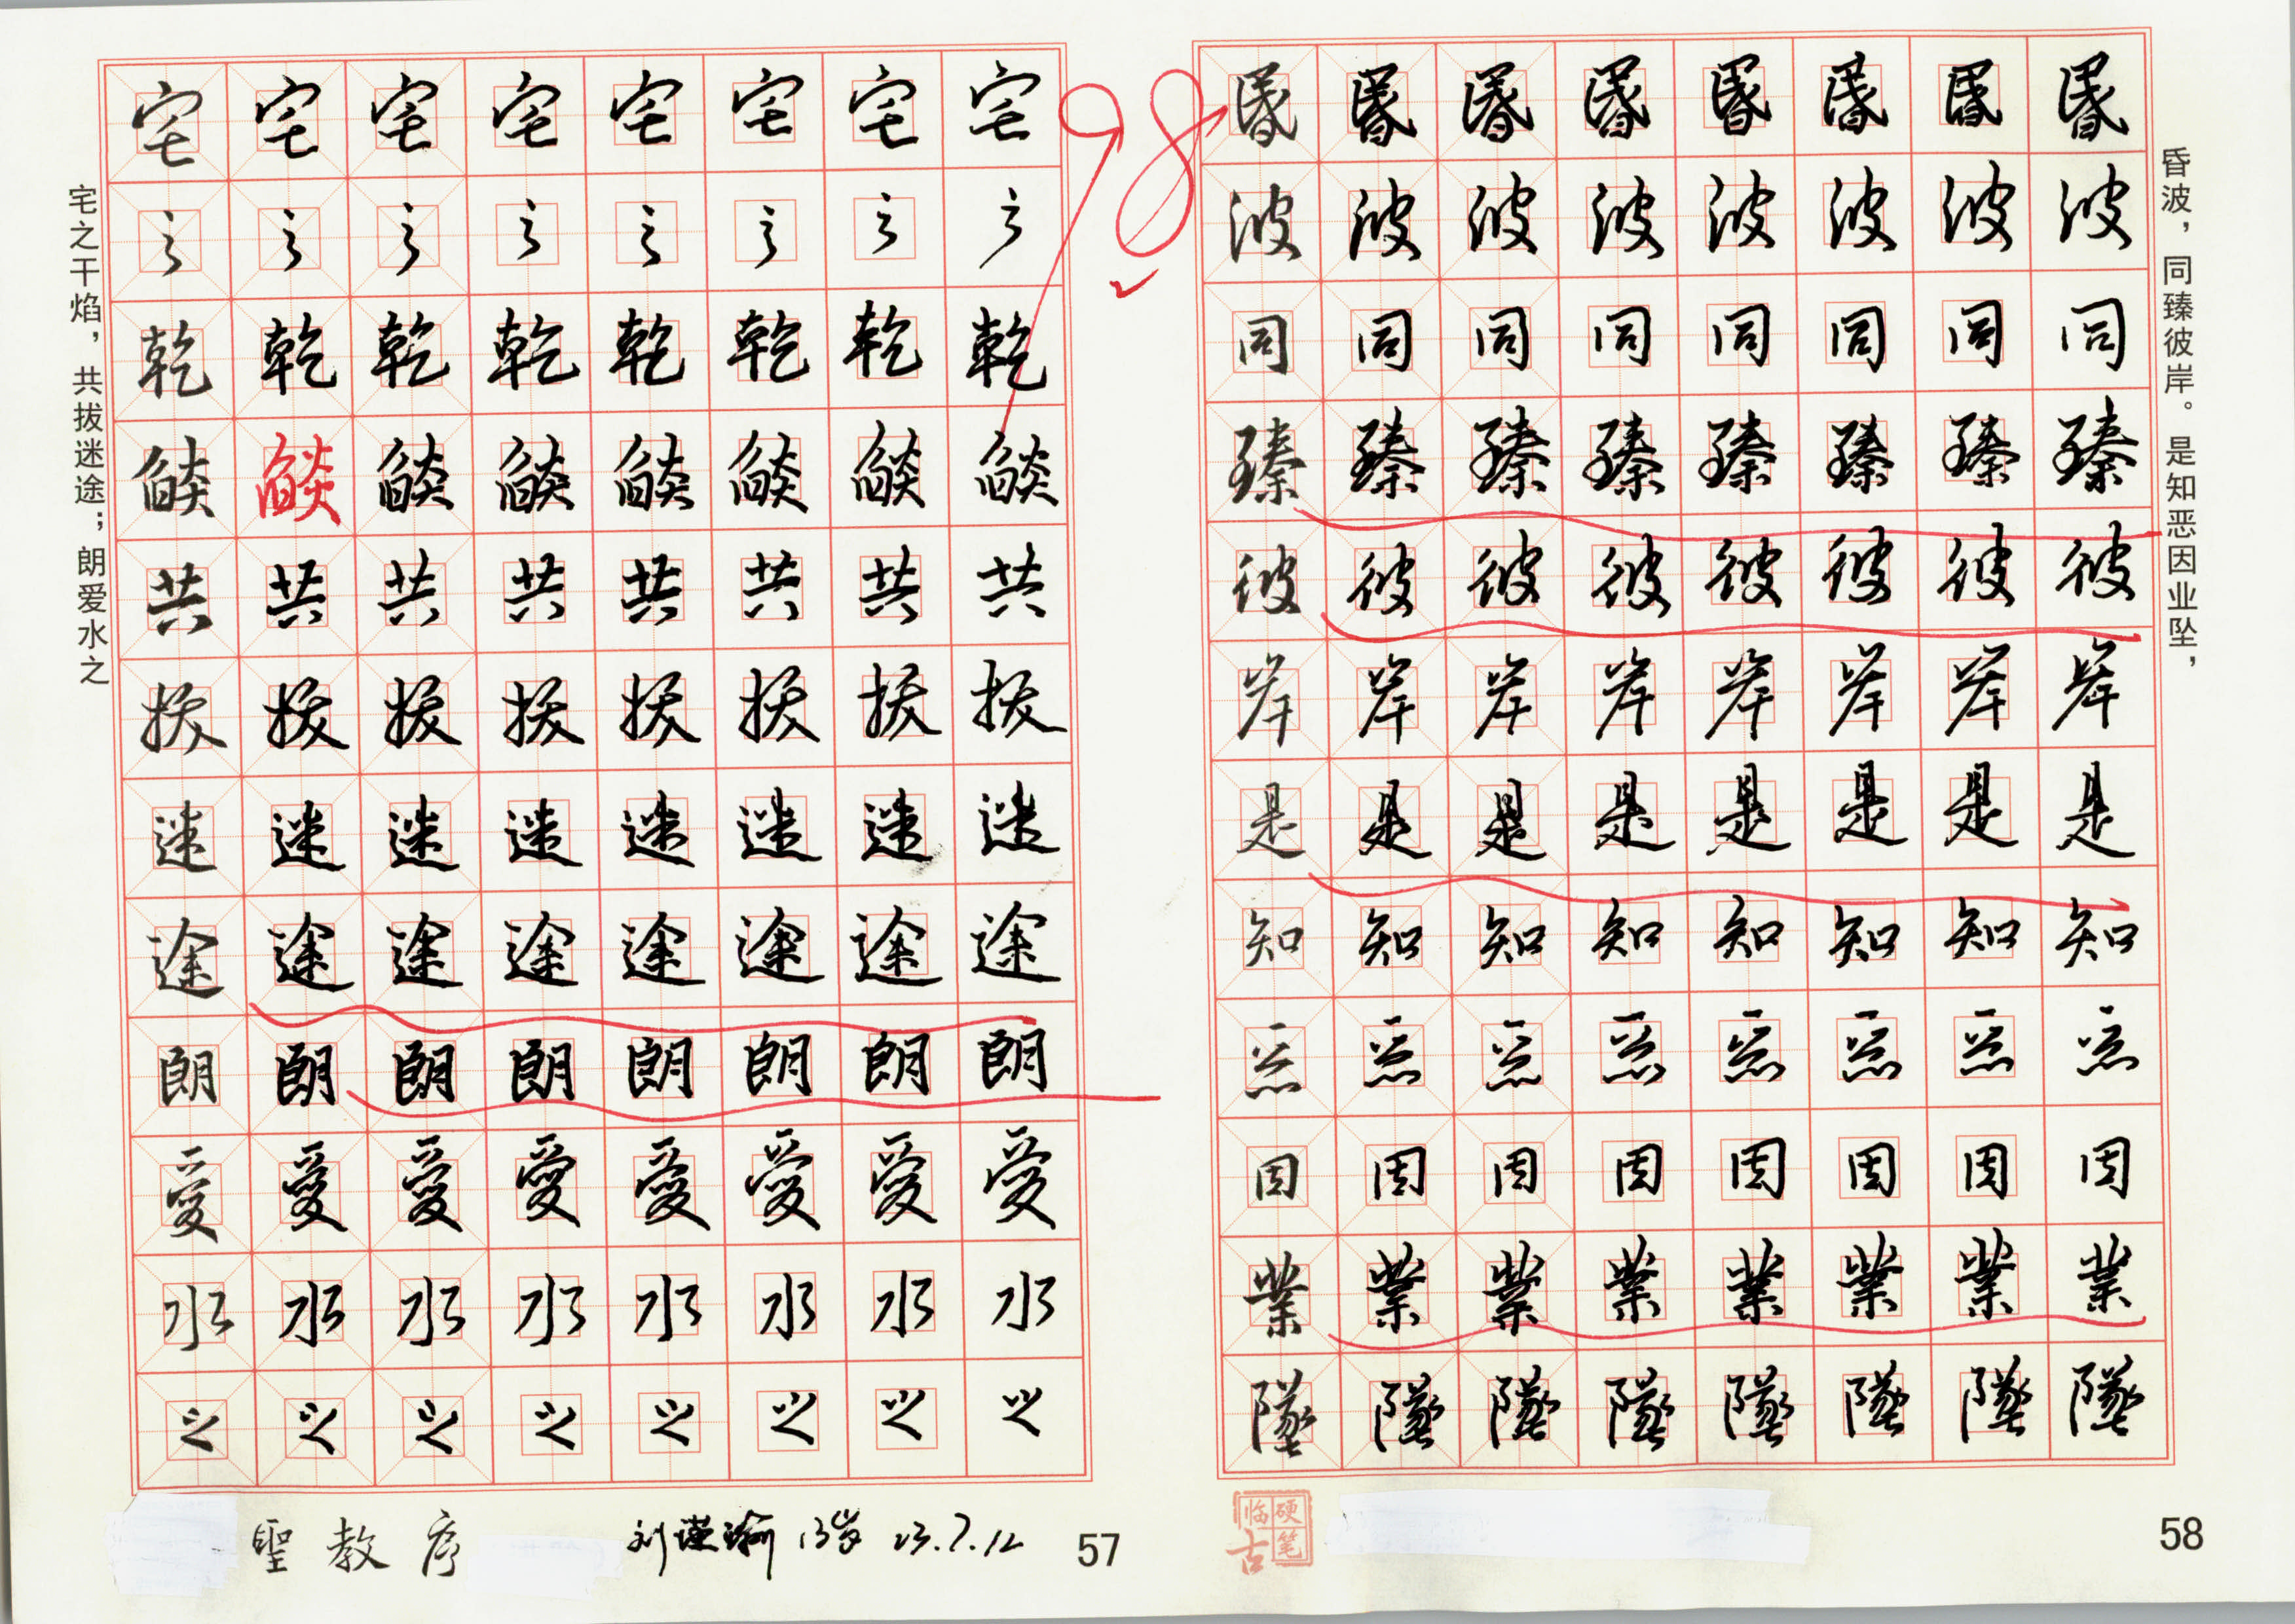 宅之干焰，共拔迷途；朗爱水之
宅宅宅宅宅宅宅宅
之之之之之之之之
乾乾乾乾乾乾乾乾
燄燄燄燄燄燄燄燄
共共共共共共共共
拔拔拔拔拔拔拔拔
迷迷迷迷迷迷迷迷
途途途途途途途途
朗朗朗朗朗朗朗朗
愛愛愛愛愛愛愛愛
水水水水水水水水
之之之之之之之之
聖教序
刘瑾瑜 13岁 23.7.12
57
98
昏昏昏昏昏昏昏昏
波波波波波波波波
同同同同同同同同
臻臻臻臻臻臻臻臻
彼彼彼彼彼彼彼彼
岸岸岸岸岸岸岸岸
是是是是是是是是
知知知知知知知知
惡惡惡惡惡惡惡惡
因因因因因因因因
業業業業業業業業
墜墜墜墜墜墜墜墜
昏波，同臻彼岸。是知恶因业坠，
硬笔临古
58